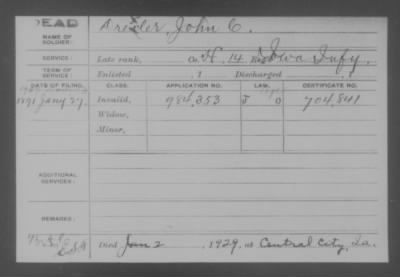 DEAD
NAME OF SOLDIER: Drexler, John C.
SERVICE: Late rank, Co. H, 14 Reg't Iowa Infy.
TERM OF SERVICE: Enlisted , 1 Discharged , 1
DATE OF FILING. CLASS. APPLICATION NO. LAW. CERTIFICATE NO.
1891 Jany 27. Invalid, 984,353 J O 704,841
Widow,
Minor,
ADDITIONAL SERVICES:
REMARKS:
Died Jan 2, 1929, at Central City, Ia.